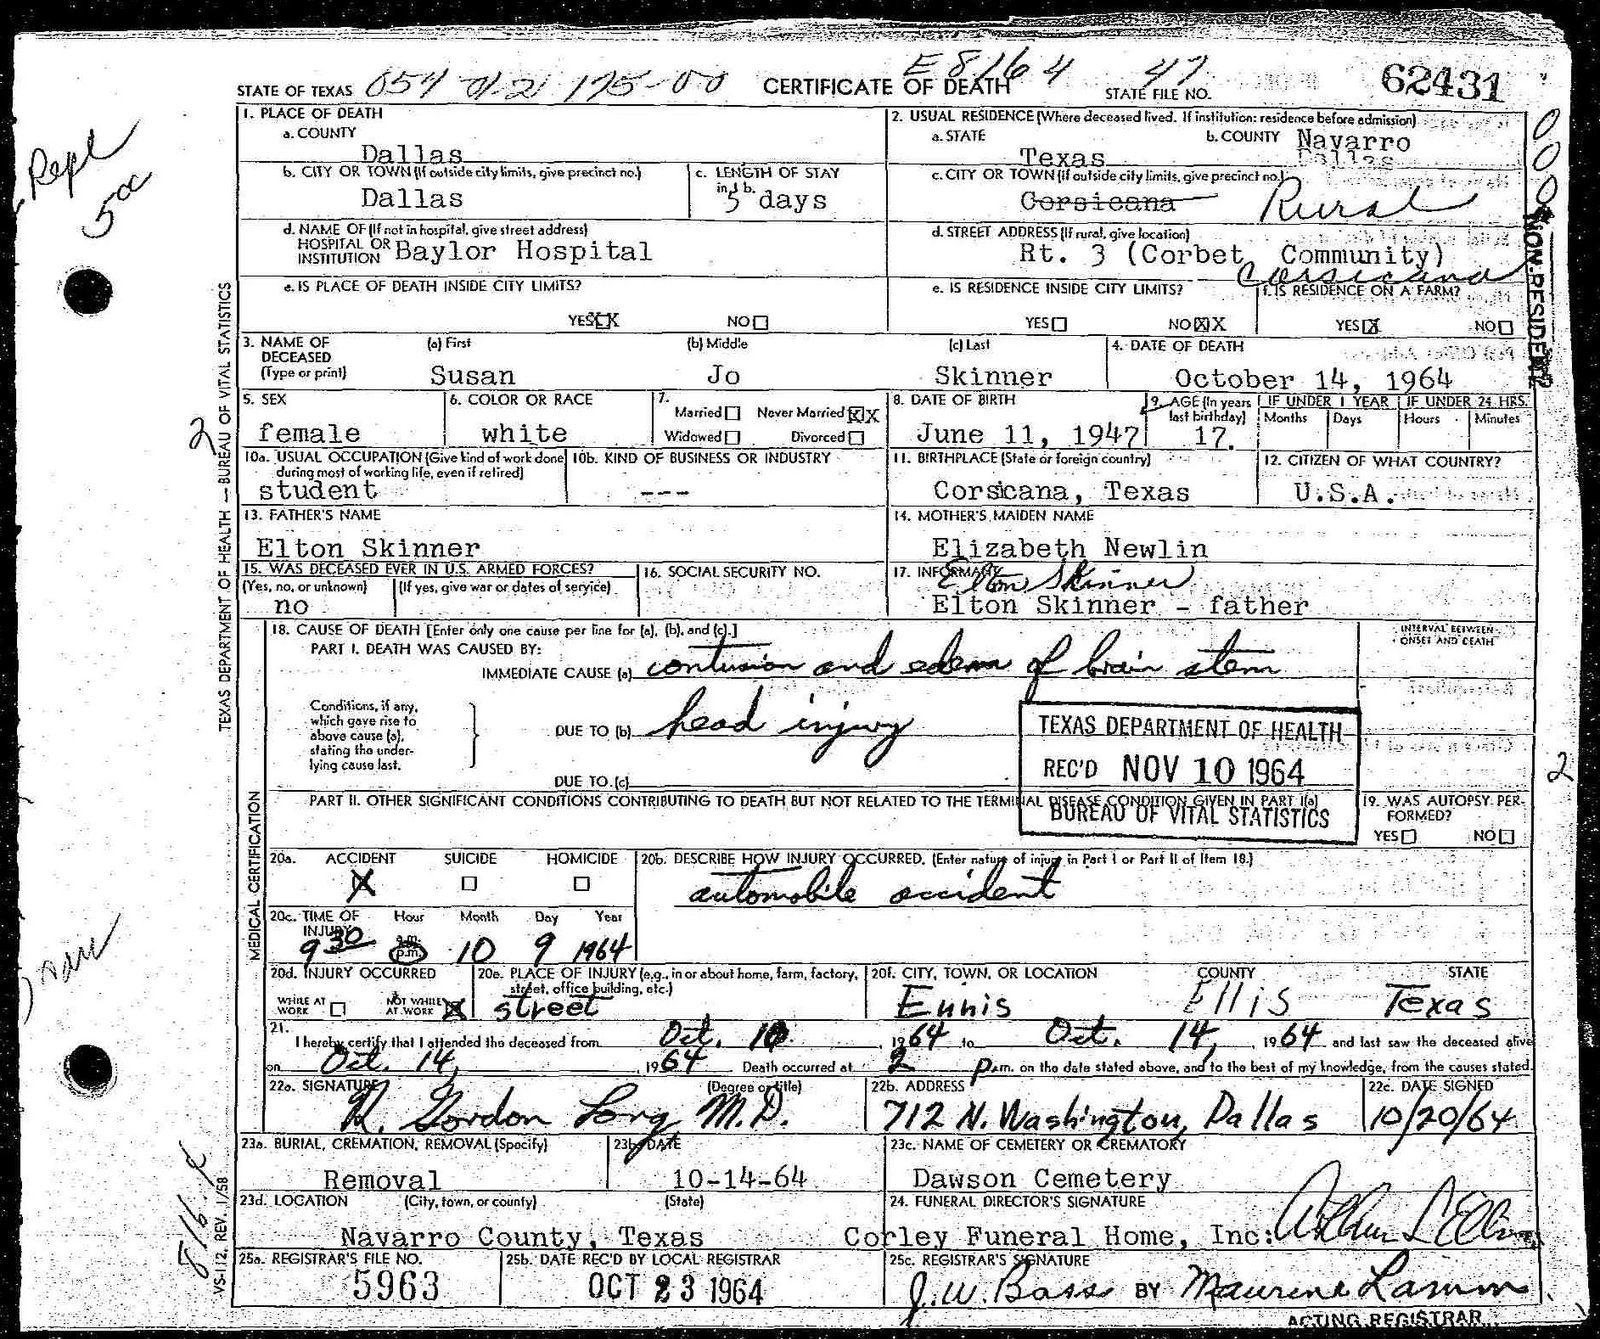 STATE OF TEXAS 054 0121 175-00 CERTIFICATE OF DEATH E 8164 47 STATE FILE NO. 62431
1. PLACE OF DEATH
a. COUNTY
Dallas
2. USUAL RESIDENCE (Where deceased lived. If institution: residence before admission)
a. STATE
Texas
b. COUNTY Navarro
Dallas
b. CITY OR TOWN (If outside city limits, give precinct no.)
Dallas
c. LENGTH OF STAY
in 1 b.
5 days
c. CITY OR TOWN (If outside city limits, give precinct no.)
Corsicana Rural
d. NAME OF (If not in hospital, give street address)
HOSPITAL OR
INSTITUTION Baylor Hospital
d. STREET ADDRESS (If rural, give location)
Rt. 3 (Corbet Community)
Corsicana
e. IS PLACE OF DEATH INSIDE CITY LIMITS?
YES XX NO
e. IS RESIDENCE INSIDE CITY LIMITS?
YES NO XX
f. IS RESIDENCE ON A FARM?
YES X NO
NON-RESIDENT
000
Repl
5 oc
3. NAME OF
DECEASED
(Type or print)
(a) First
Susan
(b) Middle
Jo
(c) Last
Skinner
4. DATE OF DEATH
October 14, 1964
5. SEX
female
6. COLOR OR RACE
white
7.
Married Never Married XX
Widowed Divorced
8. DATE OF BIRTH
June 11, 1947
9. AGE (In years
last birthday)
17.
IF UNDER 1 YEAR
Months Days
IF UNDER 24 HRS.
Hours Minutes
10a. USUAL OCCUPATION (Give kind of work done
during most of working life, even if retired)
student
10b. KIND OF BUSINESS OR INDUSTRY
---
11. BIRTHPLACE (State or foreign country)
Corsicana, Texas
12. CITIZEN OF WHAT COUNTRY?
U.S.A.
13. FATHER'S NAME
Elton Skinner
14. MOTHER'S MAIDEN NAME
Elizabeth Newlin
15. WAS DECEASED EVER IN U.S. ARMED FORCES?
(Yes, no, or unknown) (If yes, give war or dates of service)
no
16. SOCIAL SECURITY NO.
17. INFORMANT
Elton Skinner
Elton Skinner - father
18. CAUSE OF DEATH [Enter only one cause per line for (a), (b), and (c).]
PART I. DEATH WAS CAUSED BY:
IMMEDIATE CAUSE (a) contusion and edema of brain stem
INTERVAL BETWEEN
ONSET AND DEATH
Conditions, if any,
which gave rise to
above cause (a),
stating the under-
lying cause last.
DUE TO (b) head injury
DUE TO (c)
TEXAS DEPARTMENT OF HEALTH
REC'D NOV 10 1964
BUREAU OF VITAL STATISTICS
PART II. OTHER SIGNIFICANT CONDITIONS CONTRIBUTING TO DEATH BUT NOT RELATED TO THE TERMINAL DISEASE CONDITION GIVEN IN PART I(a)
19. WAS AUTOPSY PER-
FORMED?
YES NO
20a. ACCIDENT SUICIDE HOMICIDE
X
20b. DESCRIBE HOW INJURY OCCURRED. (Enter nature of injury in Part I or Part II of Item 18.)
automobile accident
20c. TIME OF
INJURY
Hour Month Day Year
9 30 a.m. p.m. 10 9 1964
20d. INJURY OCCURRED
WHILE AT
WORK
NOT WHILE
AT WORK X
20e. PLACE OF INJURY (e.g., in or about home, farm, factory,
street, office building, etc.)
street
20f. CITY, TOWN, OR LOCATION COUNTY STATE
Ennis Ellis Texas
21. I hereby certify that I attended the deceased from Oct. 10, 1964 to Oct. 14, 1964 and last saw the deceased alive
on Oct. 14, 1964 Death occurred at 2 p.m. on the date stated above, and to the best of my knowledge, from the causes stated.
22a. SIGNATURE (Degree or title)
R. Gordon Long M.D.
22b. ADDRESS
712 N. Washington, Dallas
22c. DATE SIGNED
10/20/64
23a. BURIAL, CREMATION, REMOVAL (Specify)
Removal
23b. DATE
10-14-64
23c. NAME OF CEMETERY OR CREMATORY
Dawson Cemetery
23d. LOCATION (City, town, or county) (State)
Navarro County, Texas
24. FUNERAL DIRECTOR'S SIGNATURE
Corley Funeral Home, Inc:
25a. REGISTRAR'S FILE NO.
5963
25b. DATE REC'D BY LOCAL REGISTRAR
OCT 23 1964
25c. REGISTRAR'S SIGNATURE
J. W. Bass BY Maurine Lamm
ACTING REGISTRAR
TEXAS DEPARTMENT OF HEALTH — BUREAU OF VITAL STATISTICS
MEDICAL CERTIFICATION
VS-112, REV. 1/58
2
2